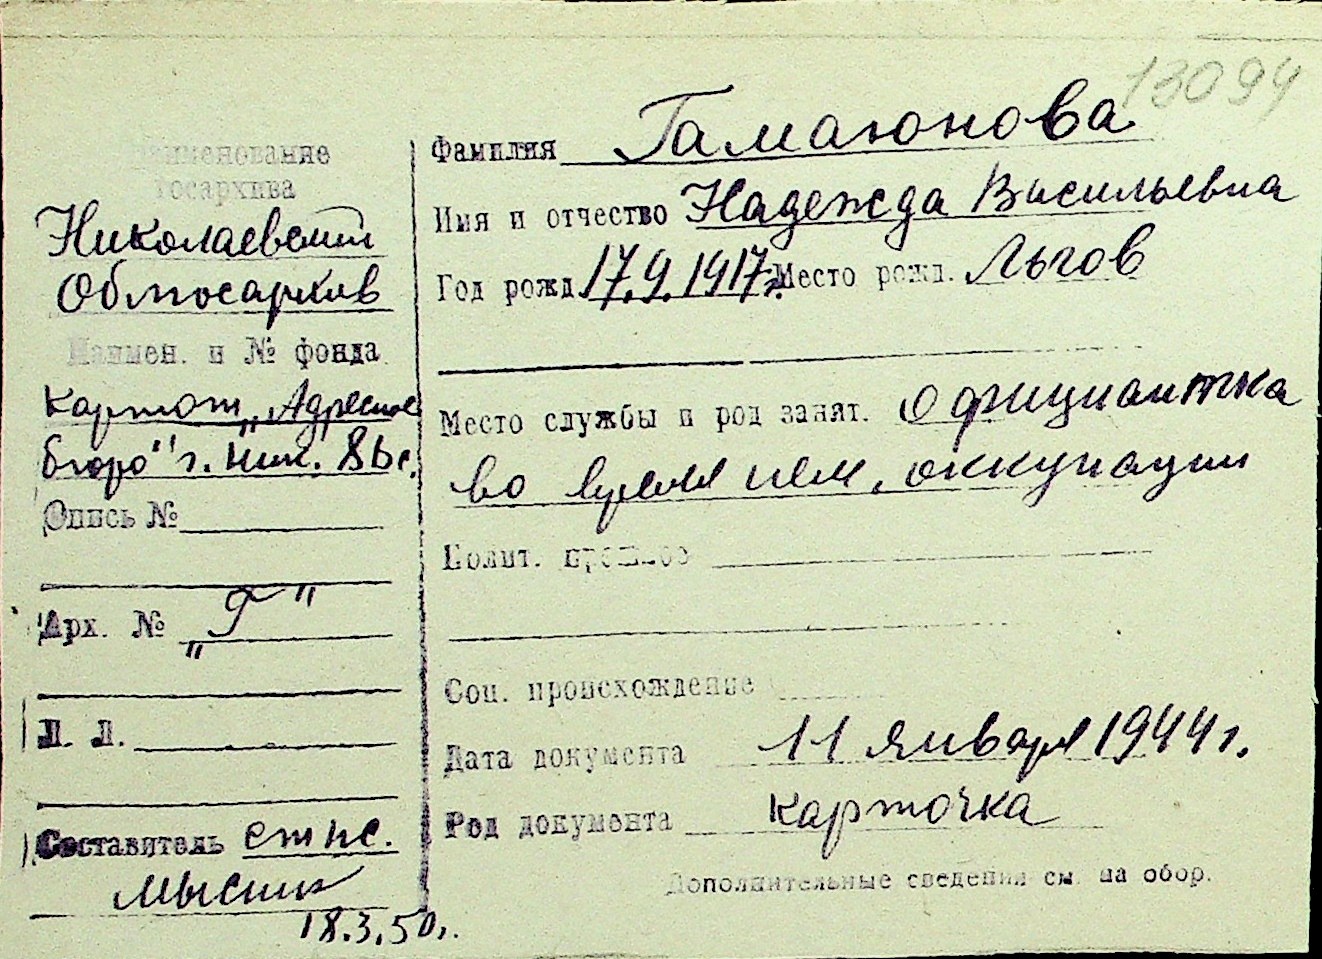 13094
Наименование
госархива
Николаевский
Облгосархив
Наимен. и № фонда
Картот. „Адресное
бюро" г. Ник.
Опись №
Арх. № „Г"
Л. Л.
Составитель
Мысик
18.3.50г.
Фамилия Гамаюнова
Имя и отчество Надежда Васильевна
Год рожд 17.9.1917г. Место рожд. Льгов
Место службы и род занят. официантка
во время нем. оккупации
Полит. прошлое
Соц. происхождение
Дата документа 11 января 1944г.
Род документа карточка
Дополнительные сведения см. на обор.